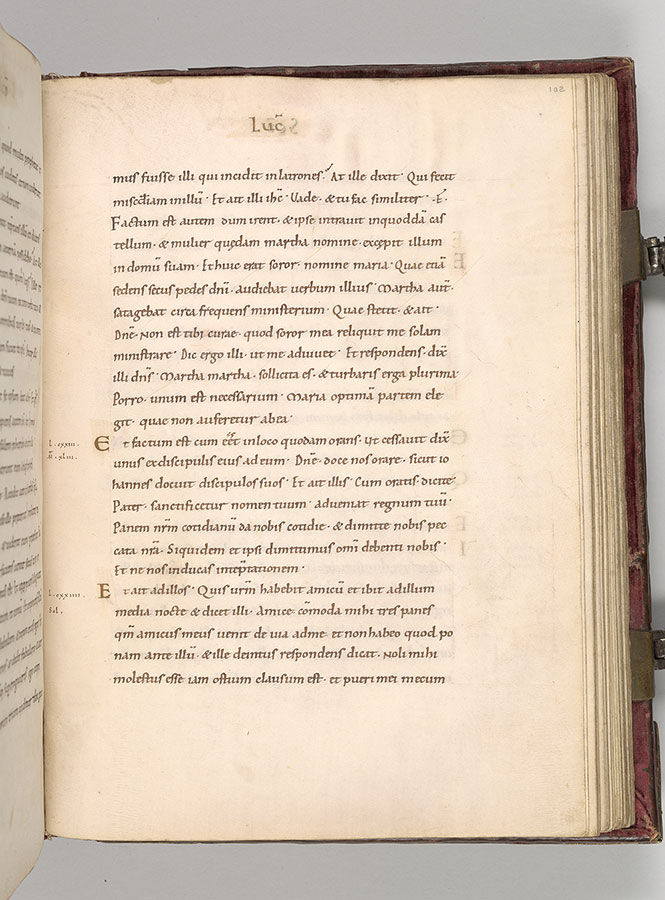 Luc̄
102
mus fuisse illi qui incidit in latrones? At ille dixit· Qui fecit
misc̄diam in illū· Et ait illi ihc̄· Uade· & tu fac similiter·
Factum est autem dum irent· & ipse intrauit in quoddā cas
tellum· & mulier quędam martha nomine· excepit illum
in domū suam· Et huic erat soror nomine maria· Quae etiā
sedens secus pedes dnī· audiebat uerbum illius· Martha aut̄·
satagebat circa frequens ministerium· Quae stetit· & ait·
Dnē· Non est tibi curae· quod soror mea reliquit me solam
ministrare· Dic ergo illi· ut me adiuuet· Et respondens· dix̄
illi dn̄s· Martha martha· sollicita es· & turbaris erga plurima·
Porro· unum est necessarium· Maria optimā partem ele
git· quae non auferetur ab ea·
Et factum est cum eēt in loco quodam orans· Ut cessauit dix̄
unus ex discipulis eius ad eum· Dnē· doce nos orare· sicut io
hannes docuit discipulos suos· Et ait illis· Cum oratis· dicite·
Pater· sanctificetur nomen tuum· adueniat regnum tuū·
Panem nr̄m cotidianū da nobis cotidie· & dimitte nobis pec
cata nr̄a· Siquidem et ipsi dimittimus om̄i debenti nobis·
Et ne nos inducas in temptationem·
Et ait ad illos· Quis ur̄m habebit amicū et ibit ad illum
media nocte & dicet illi· Amice cōmoda mihi tres panes
qm̄ amicus meus uenit de uia ad me· et non habeo quod po
nam ante illū· & ille deintus respondens dicat· Noli mihi
molestus esse iam ostium clausum est· et pueri mei mecum
l. cxxiii.
m̄. xliii.
l. cxxiiii.
Sol.